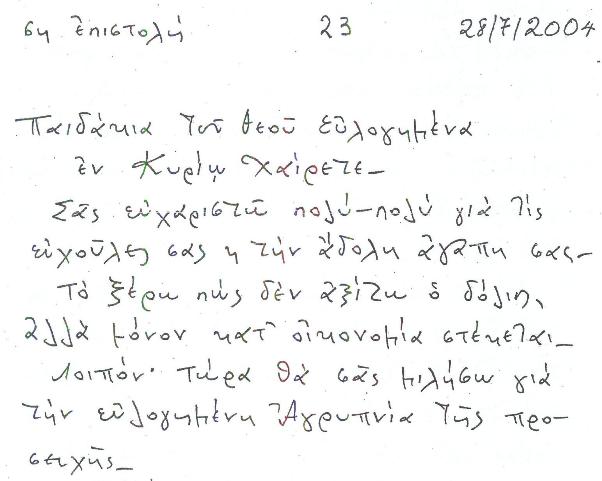 ςη ἐπιστολή 23 28/7/2004
Παιδάκια τοῦ Θεοῦ εὐλογημένα
ἐν Κυρίῳ Χαίρετε–
Σᾶς εὐχαριστῶ πολύ-πολύ γιὰ τὶς
εὐχοῦλες σας ϗ τὴν ἄδολη ἀγάπη σας–
Τὸ ξέρω πώς δὲν ἀξίζω ὁ δόλιος,
ἀλλὰ μόνον κατ᾽ οἰκονομία στέκεται–
Λοιπόν· τώρα θὰ σᾶς μιλήσω γιὰ
τὴν εὐλογημένη Ἀγρυπνία τῆς προ-
σευχῆς–